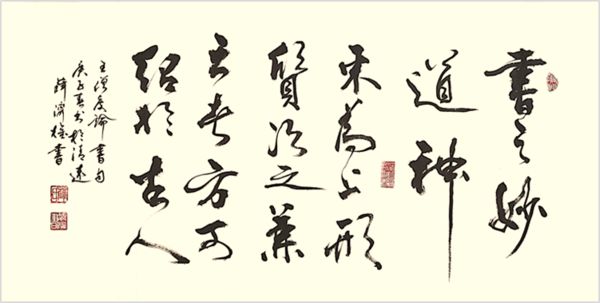 書之妙
道神
采為上形
質次之兼
之者方可
紹於古人
王僧虔論書句
庚子夏书於清遠
書